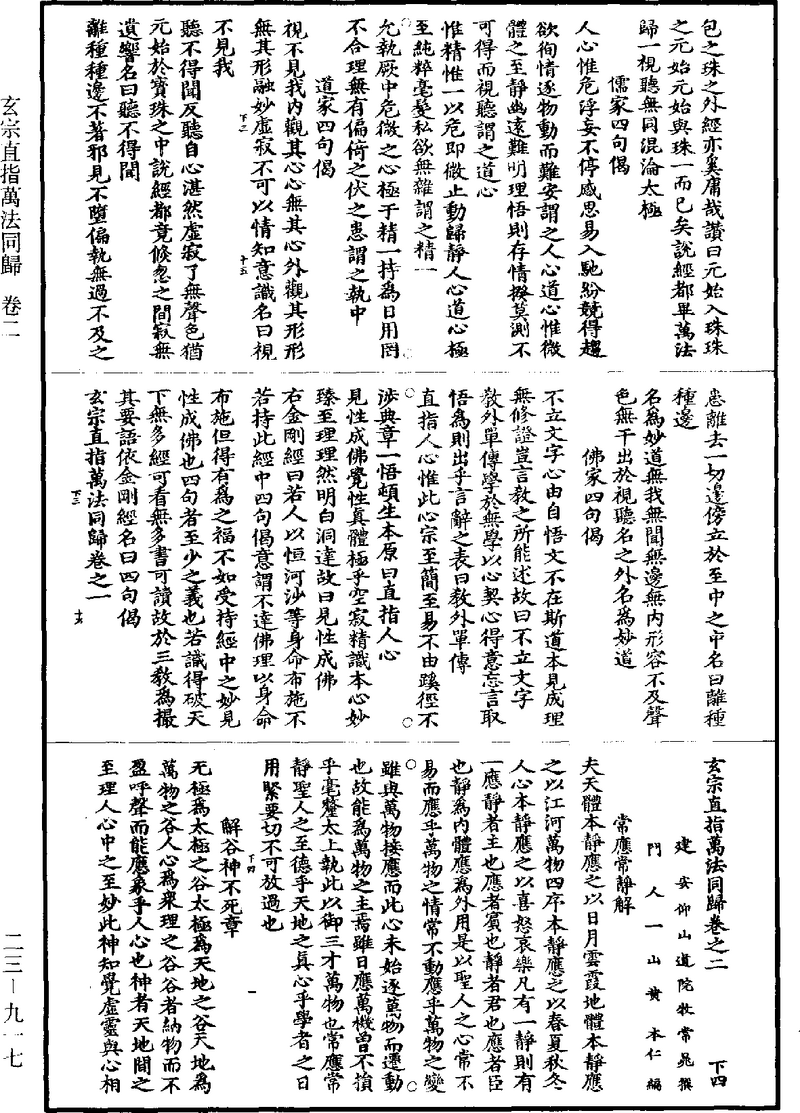 玄宗直指萬法同歸 卷二
二三—九一七
包之珠之外經亦奚庸哉讚曰元始入珠珠
之元始元始與珠一而已矣說經都畢萬法
歸一視聽無同混淪太極
儒家四句偈
人心惟危浮妄不停感思易入馳紛競得趨
欲徇情逐物動而難安謂之人心道心惟微
體之至靜幽遠難明理悟則存情揆莫測不
可得而視聽謂之道心
惟精惟一以危即微止動歸靜人心道心極
至純粹毫髮私欲無雜謂之精一
允執厥中危微之心極于精一持爲日用罔
不合理無有偏倚之伏之患謂之執中
道家四句偈
視不見我內觀其心心無其心外觀其形形
無其形融妙虛寂不可以情知意識名曰視
不見我
聽不得聞反聽自心湛然虛寂了無聲色猶
元始於寶珠之中說經都竟倏忽之間寂無
遺響名曰聽不得聞
離種種邊不著邪見不墮偏執無過不及之
下二
十五
患離去一切邊傍立於至中之中名曰離種
種邊
名爲妙道無我無聞無邊無內形容不及聲
色無干出於視聽名之外名爲妙道
佛家四句偈
不立文字心由自悟文不在斯道本見成理
無修證豈言教之所能述故曰不立文字
教外單傳學於無學以心契心得意忘言取
悟爲則出乎言辭之表曰教外單傳
直指人心惟此心宗至簡至易不由蹊徑不
涉典章一悟頓生本原曰直指人心
見性成佛覺性真體極乎空寂精識本心妙
臻至理理然明白洞達故曰見性成佛
右金剛經曰若人以恒河沙等身命布施不
若持此經中四句偈意謂不達佛理以身命
布施但得有爲之福不如受持經中之妙見
性成佛也四句者至少之義也若識得破天
下無多經可看無多書可讀故於三教爲撮
其要語依金剛經名曰四句偈
玄宗直指萬法同歸卷之一
下三
玄宗直指萬法同歸卷之二 下四
建安仰山道院牧常晁撰
門人一山黃本仁編
常應常靜解
夫天體本靜應之以日月雲霞地體本靜應
之以江河萬物四序本靜應之以春夏秋冬
人心本靜應之以喜怒哀樂凡有一靜則有
一應靜者主也應者賓也靜者君也應者臣
也靜爲內體應爲外用是以聖人之心常不
易而應乎萬物之情常不動應乎萬物之變
雖與萬物接應而此心未始逐萬物而遷動
也故能爲萬物之主焉雖日應萬機曾不損
乎毫釐太上執此以御三才萬物也常應常
靜聖人之至德乎天地之真心乎學者之日
用緊要切不可放過也
下四
一
解谷神不死章
无極爲太極之谷太極爲天地之谷天地爲
萬物之谷人心爲衆理之谷谷者納物而不
盈呼聲而能應象乎人心也神者天地間之
至理人心中之至妙此神知覺虛靈與心相